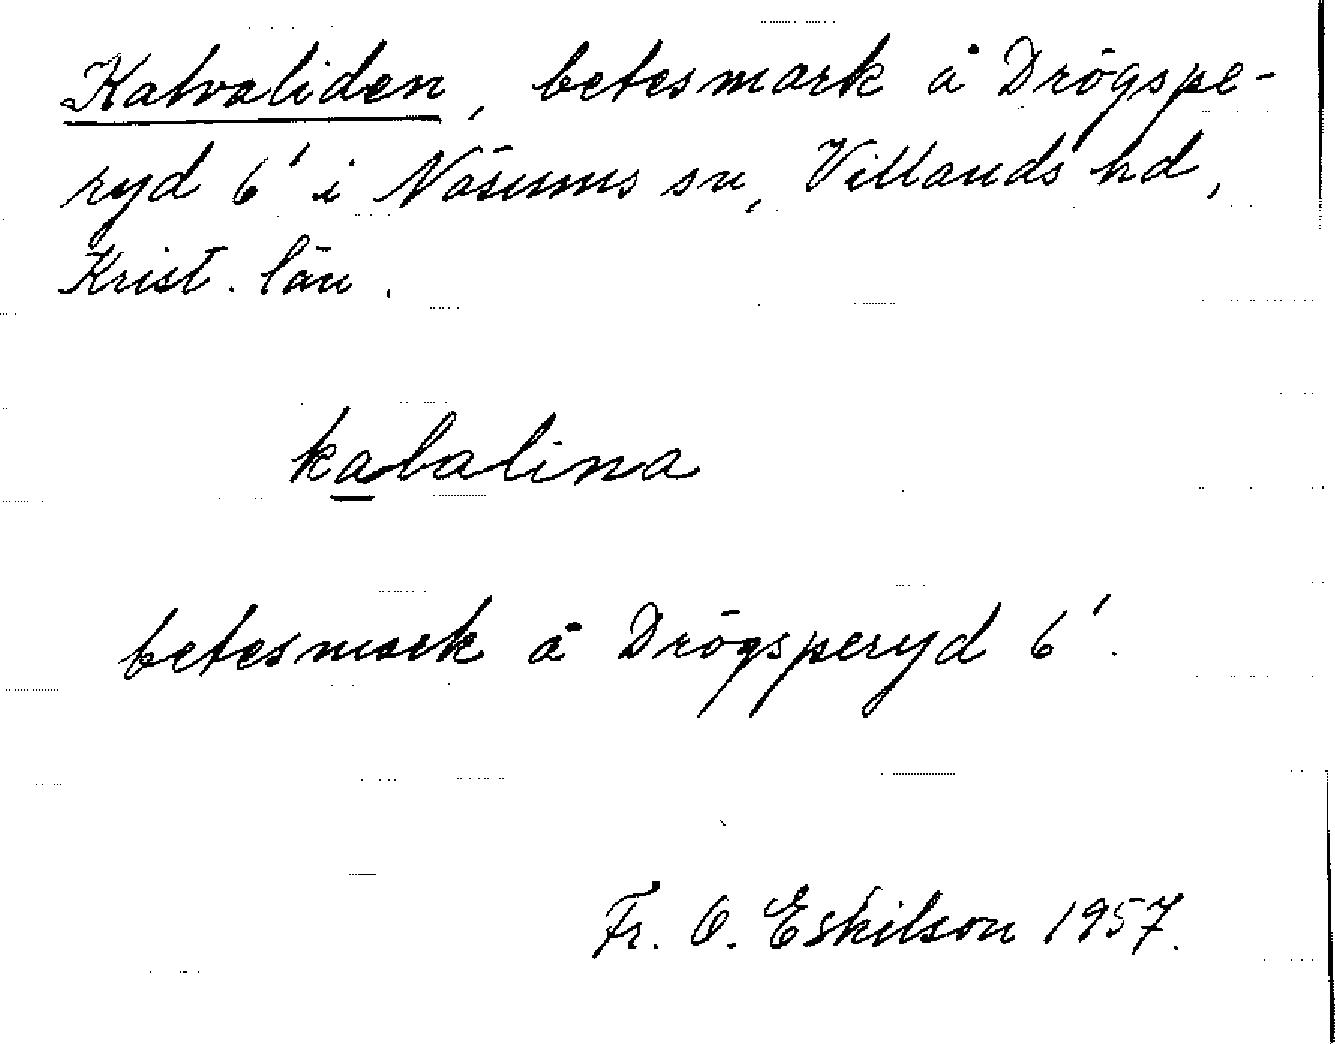 Katvaliden, betesmark å Drögspe-
ryd 6' i Näsums sn, Villands hd,
Krist. län.
kabalina
betesmark å Drögsperyd 6'.
Fr. O. Eskilson 1957.